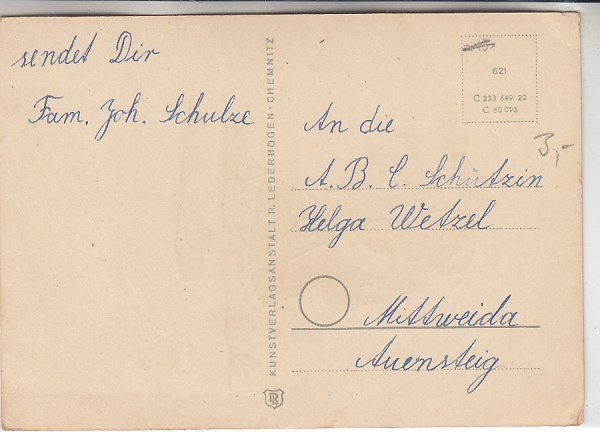 sendet Dir
Fam. Joh. Schulze
KUNSTVERLAGSANSTALT R. LEDERBOGEN · CHEMNITZ
621
C 233 649 20
C 60 093
3,-
An die
A. B. C. Schützin
Helga Wetzel
Mittweida
Auensteig